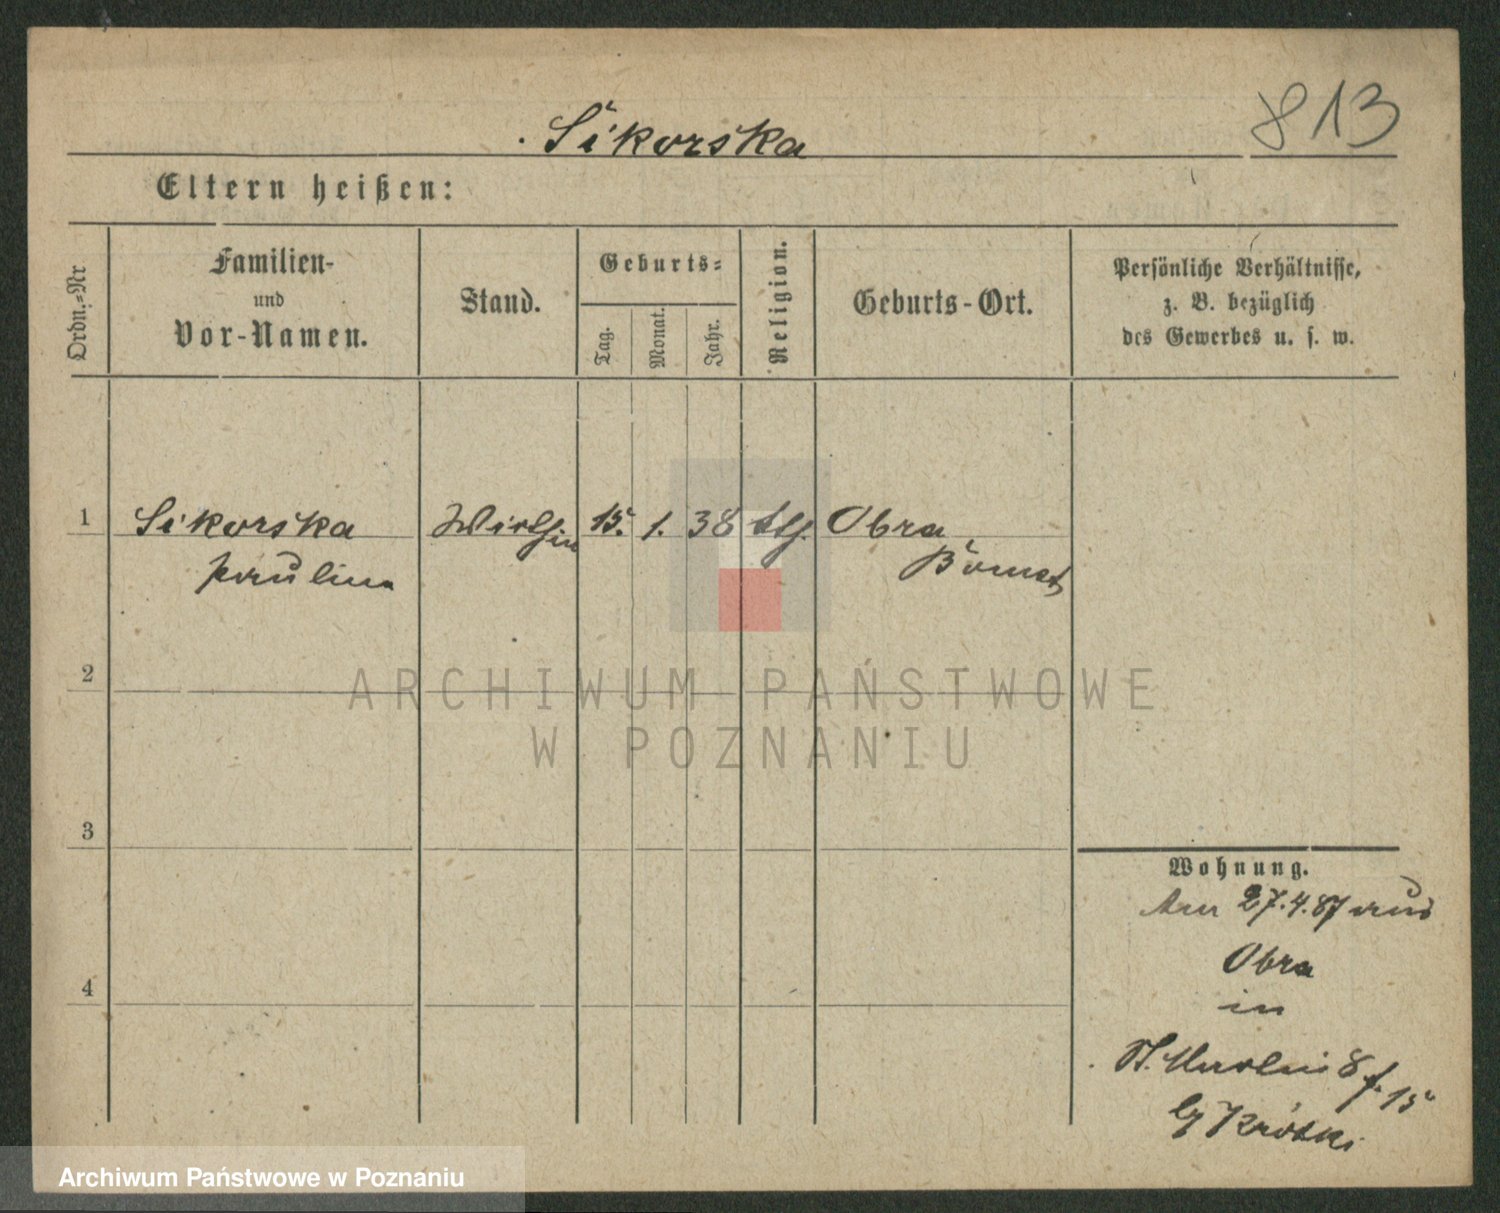 Sikorska
813
Eltern heißen:
Ordn.-Nr
Familien-
und
Vor-Namen.
Stand.
Geburts-
Tag.
Monat.
Jahr.
Religion.
Geburts-Ort.
Persönliche Verhältnisse,
z. B. bezüglich
des Gewerbes u. s. w.
1
Sikorska
Paulina
Wirthin
15.
1.
38
kth.
Obra
Bomst
2
ARCHIWUM PAŃSTWOWE
W POZNANIU
3
Wohnung.
Am 27.4.87 aus
Obra
in
4
St. Martin 8
Krótki
Archiwum Państwowe w Poznaniu